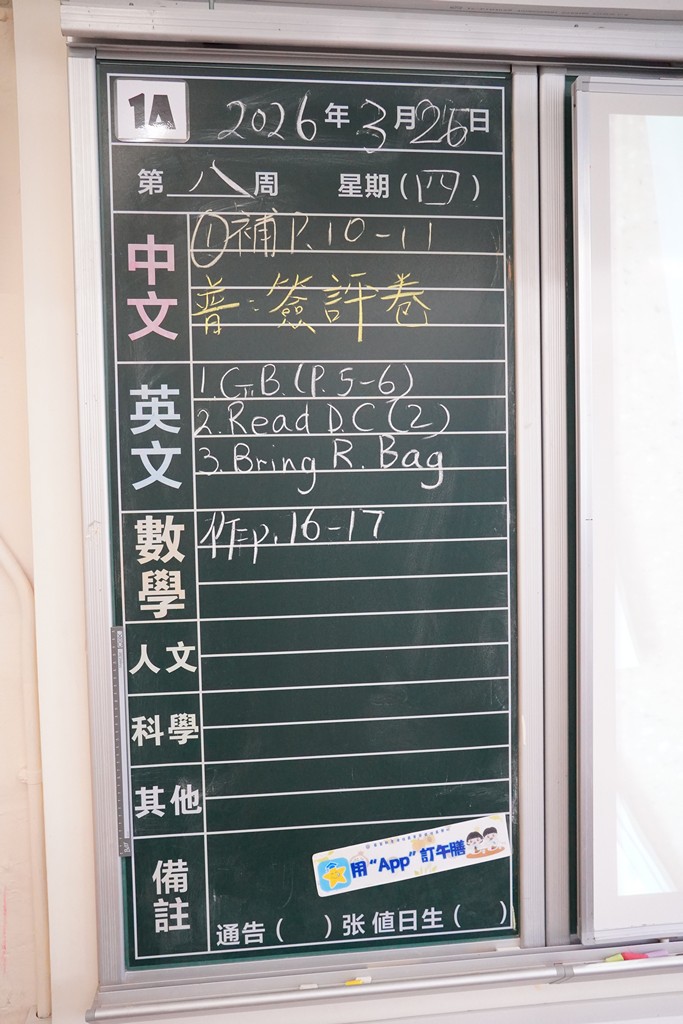 1A 2026年3月26日
第八周 星期(四)
中文
①補P.10-11
普:簽評卷
英文
1.G.B.(P.5-6)
2.Read D.C(2)
3.Bring R.Bag
數學
作p.16-17
人文
科學
其他
備註
用“App”訂午膳
通告( )张 值日生( )